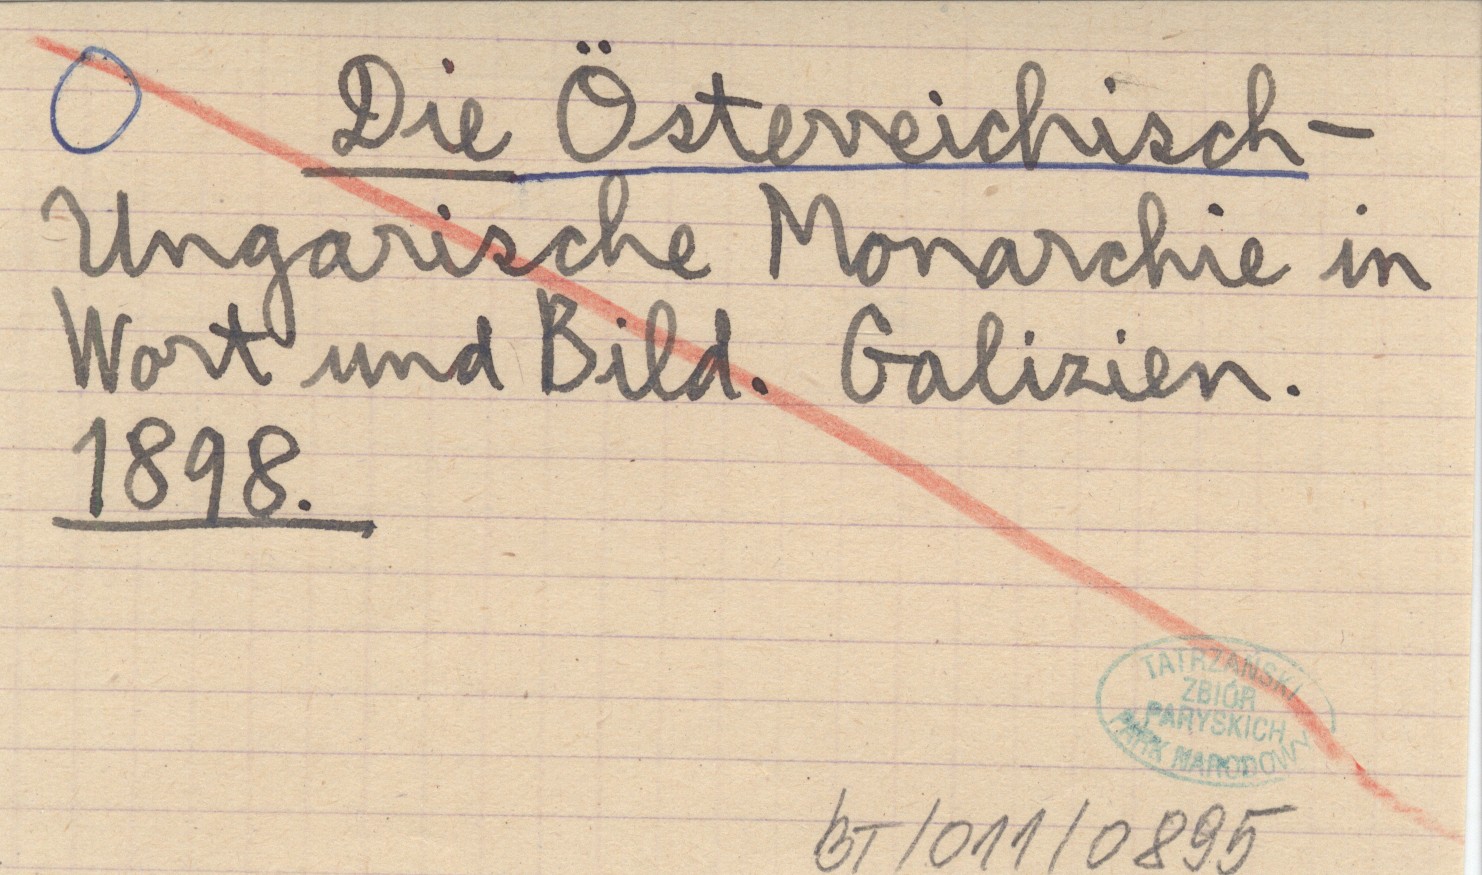 Die Österreichisch-
Ungarische Monarchie in
Wort und Bild. Galizien.
1898.
TATRZAŃSKI
ZBIÓR
PARYSKICH
PARK NARODOWY
BT/011/0895